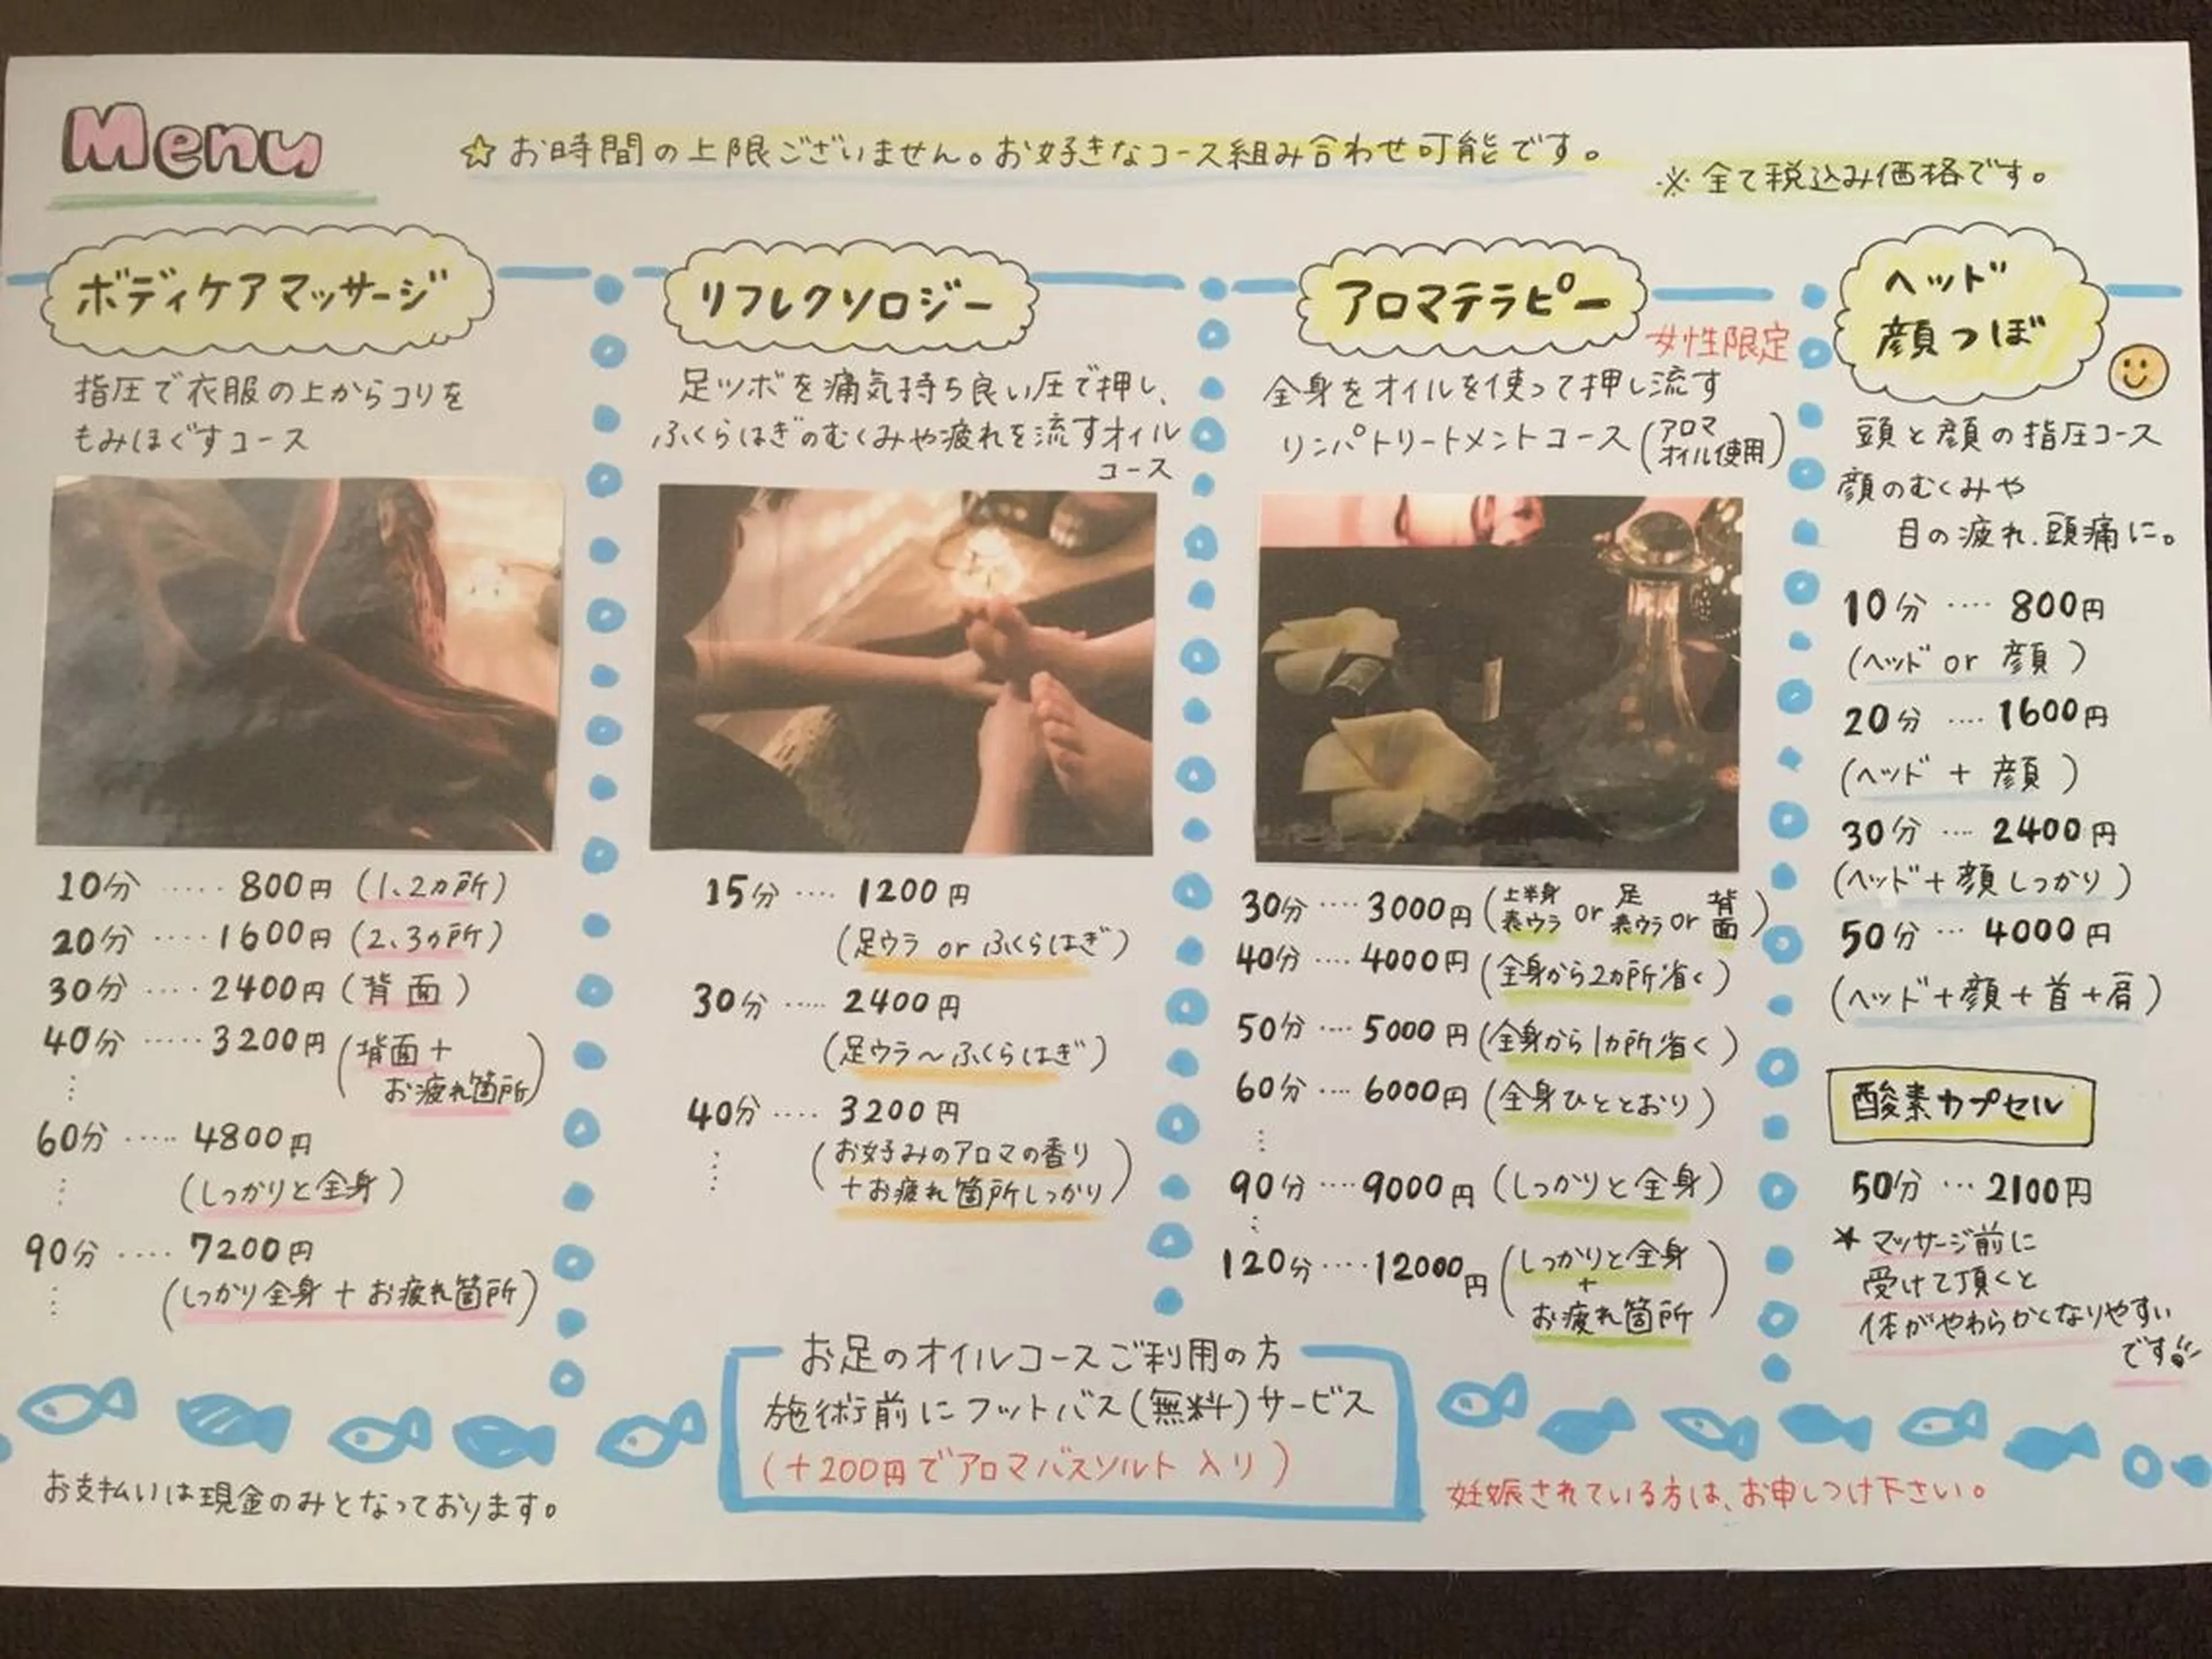 Menu
☆お時間の上限ございません。お好きなコース組み合わせ可能です。
※全て税込み価格です。
ボディケアマッサージ
指圧で衣服の上からコリを
もみほぐすコース
10分 ····· 800円 (1、2カ所)
20分 ····· 1600円 (2、3カ所)
30分 ····· 2400円 (背面)
40分 ····· 3200円 (背面+
お疲れ箇所)
⋮
60分 ····· 4800円
(しっかりと全身)
⋮
90分 ···· 7200円
(しっかり全身+お疲れ箇所)
⋮
リフレクソロジー
足ツボを痛気持ち良い圧で押し、
ふくらはぎのむくみや疲れを流すオイル
コース
15分 ···· 1200円
(足ウラ or ふくらはぎ)
30分 ····· 2400円
(足ウラ〜ふくらはぎ)
40分 ···· 3200円
(お好みのアロマの香り
+お疲れ箇所しっかり)
⋮
アロマテラピー
女性限定
全身をオイルを使って押し流す
リンパトリートメントコース (アロマ
オイル使用)
30分 ···· 3000円 (上半身表ウラ or 足表ウラ or 背面)
40分 ···· 4000円 (全身から2カ所省く)
50分 ···· 5000円 (全身から1カ所省く)
60分 ···· 6000円 (全身ひととおり)
⋮
90分 ···· 9000円 (しっかりと全身)
⋮
120分 ···· 12000円 (しっかりと全身
+
お疲れ箇所)
ヘッド
顔つぼ
頭と顔の指圧コース
顔のむくみや
目の疲れ、頭痛に。
10分 ···· 800円
(ヘッド or 顔)
20分 ···· 1600円
(ヘッド + 顔)
30分 ···· 2400円
(ヘッド+顔しっかり)
50分 ··· 4000円
(ヘッド+顔+首+肩)
酸素カプセル
50分 ··· 2100円
★マッサージ前に
受けて頂くと
体がやわらかくなりやすい
です!!
お足のオイルコースご利用の方
施術前にフットバス(無料)サービス
(+200円でアロマバスソルト入り)
お支払いは現金のみとなっております。
妊娠されている方は、お申しつけ下さい。